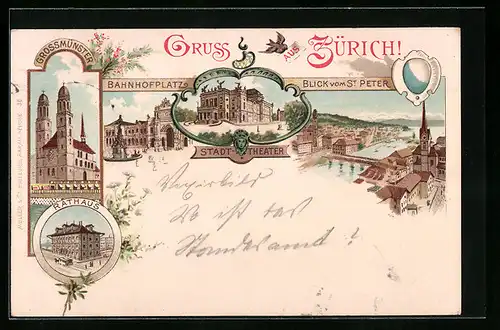 GRUSS AUS ZÜRICH!
GROSSMÜNSTER
BAHNHOFPLATZ
BLICK VOM ST PETER
STADT-THEATER
RATHAUS
Vexirbild
Wo ist das
Standesamt?